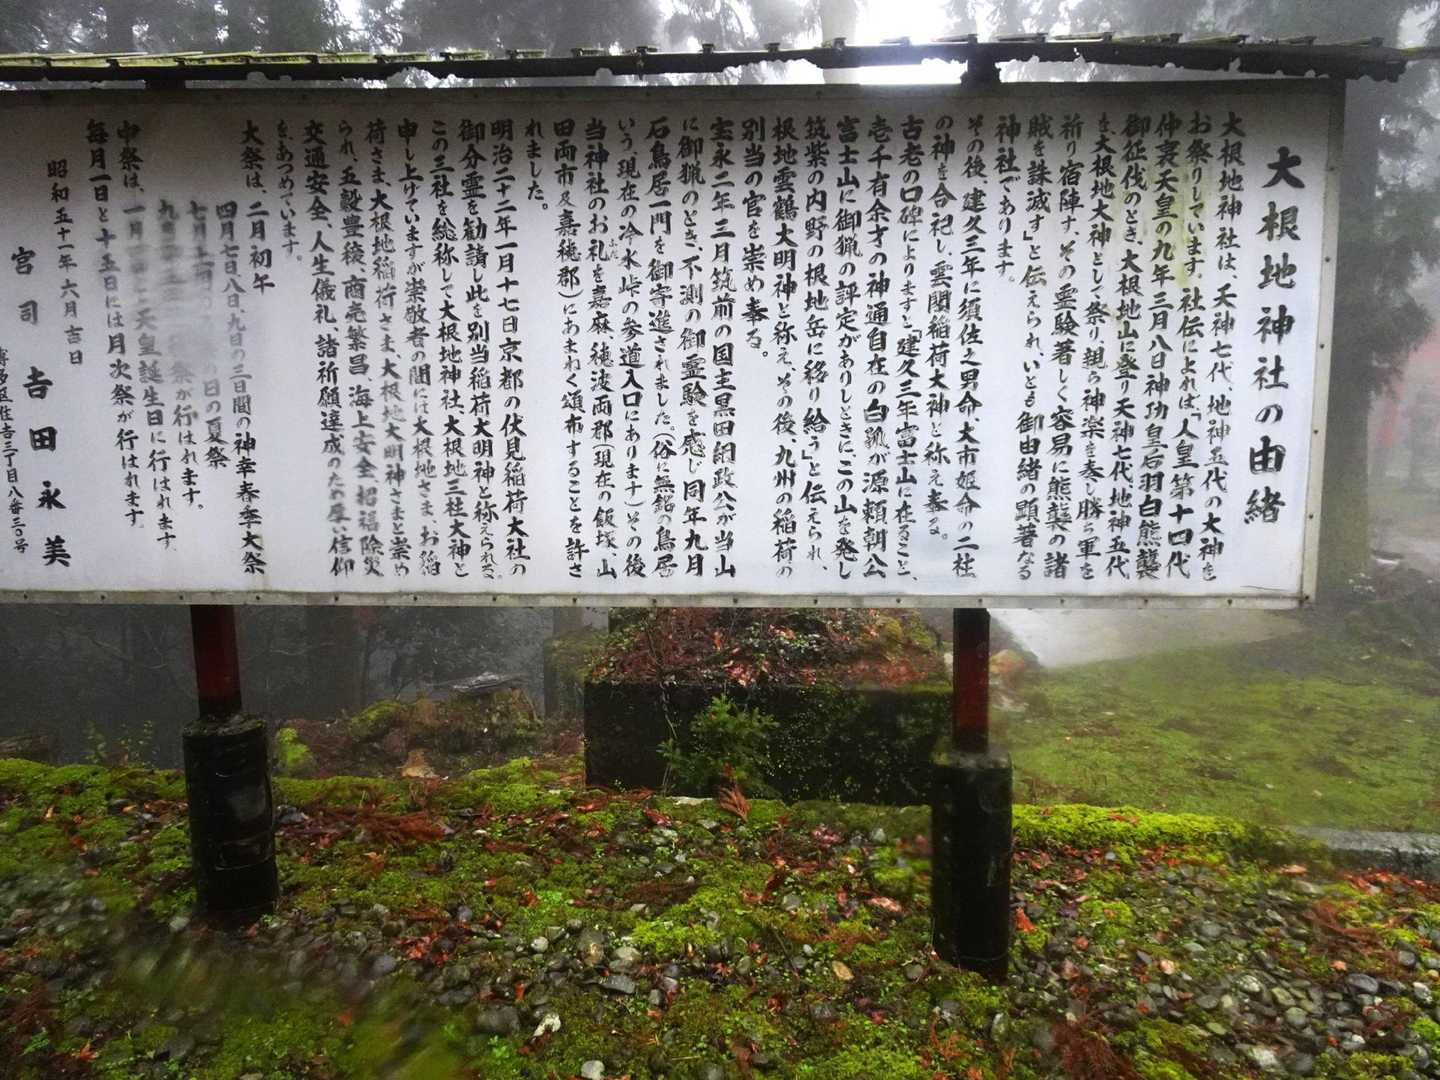 大根地神社の由緒
大根地神社は、天神七代、地神五代の大神を
お祭りしています。社伝によれば「人皇第十四代
仲哀天皇の九年三月八日神功皇后羽白熊襲
御征伐のとき、大根地山に登り天神七代地神五代
を、大根地大神として祭り、親ら神楽を奏し勝ち軍を
祈り宿陣す、その霊験著しく容易に熊襲の諸
賊を誅滅す」と伝えられ、いとも御由緒の顕著なる
神社であります。
その後、建久三年に須佐之男命、大市姫命の二社
の神を合祀し、雲閣稲荷大神と称え奉る。
古老の口碑によりますと「建久三年富士山に在ること、
壱千有余才の神通自在の白狐が源頼朝公
富士山に御猟の評定がありしときに、この山を発し
筑紫の内野の根地岳に移り給う」と伝えられ、
根地雲鶴大明神と称え、その後、九州の稲荷の
別当の宮を崇め奉る。
宝永二年三月筑前の国主黒田綱政公が当山
に御猟のとき、不測の御霊験を感じ同年九月
石鳥居一門を御寄進されました。(俗に無銘の鳥居
いう、現在の冷水峠の参道入口にあります)その後
当神社のお礼を嘉麻、穂波両郡(現在の飯塚、山
田両市及嘉穂郡)にあまねく頒布することを許さ
れました。
明治二十二年一月十七日京都の伏見稲荷大社の
御分霊を勧請し此を別当稲荷大明神と称えられる。
この三社を総称して大根地神社大根地三社大神と
申し上げていますが崇敬者の間には大根地さま、お稲
荷さま、大根地稲荷さま、大根地大明神さまと崇め
られ、五穀豊穣、商売繁昌、海上安全、招福除災
交通安全、人生儀礼、諸祈願達成のため厚い信仰
をあつめています。
大祭は、二月初午
四月七日八日、九日の三日間の神幸春季大祭
七月 の日の夏祭
九 祭が行はれます。
中祭は、一月 天皇誕生日に行はれます。
毎月一日と十五日には月次祭が行はれます。
昭和五十一年六月吉日
宮司 吉田永美
博多区住吉三丁目八番三〇号